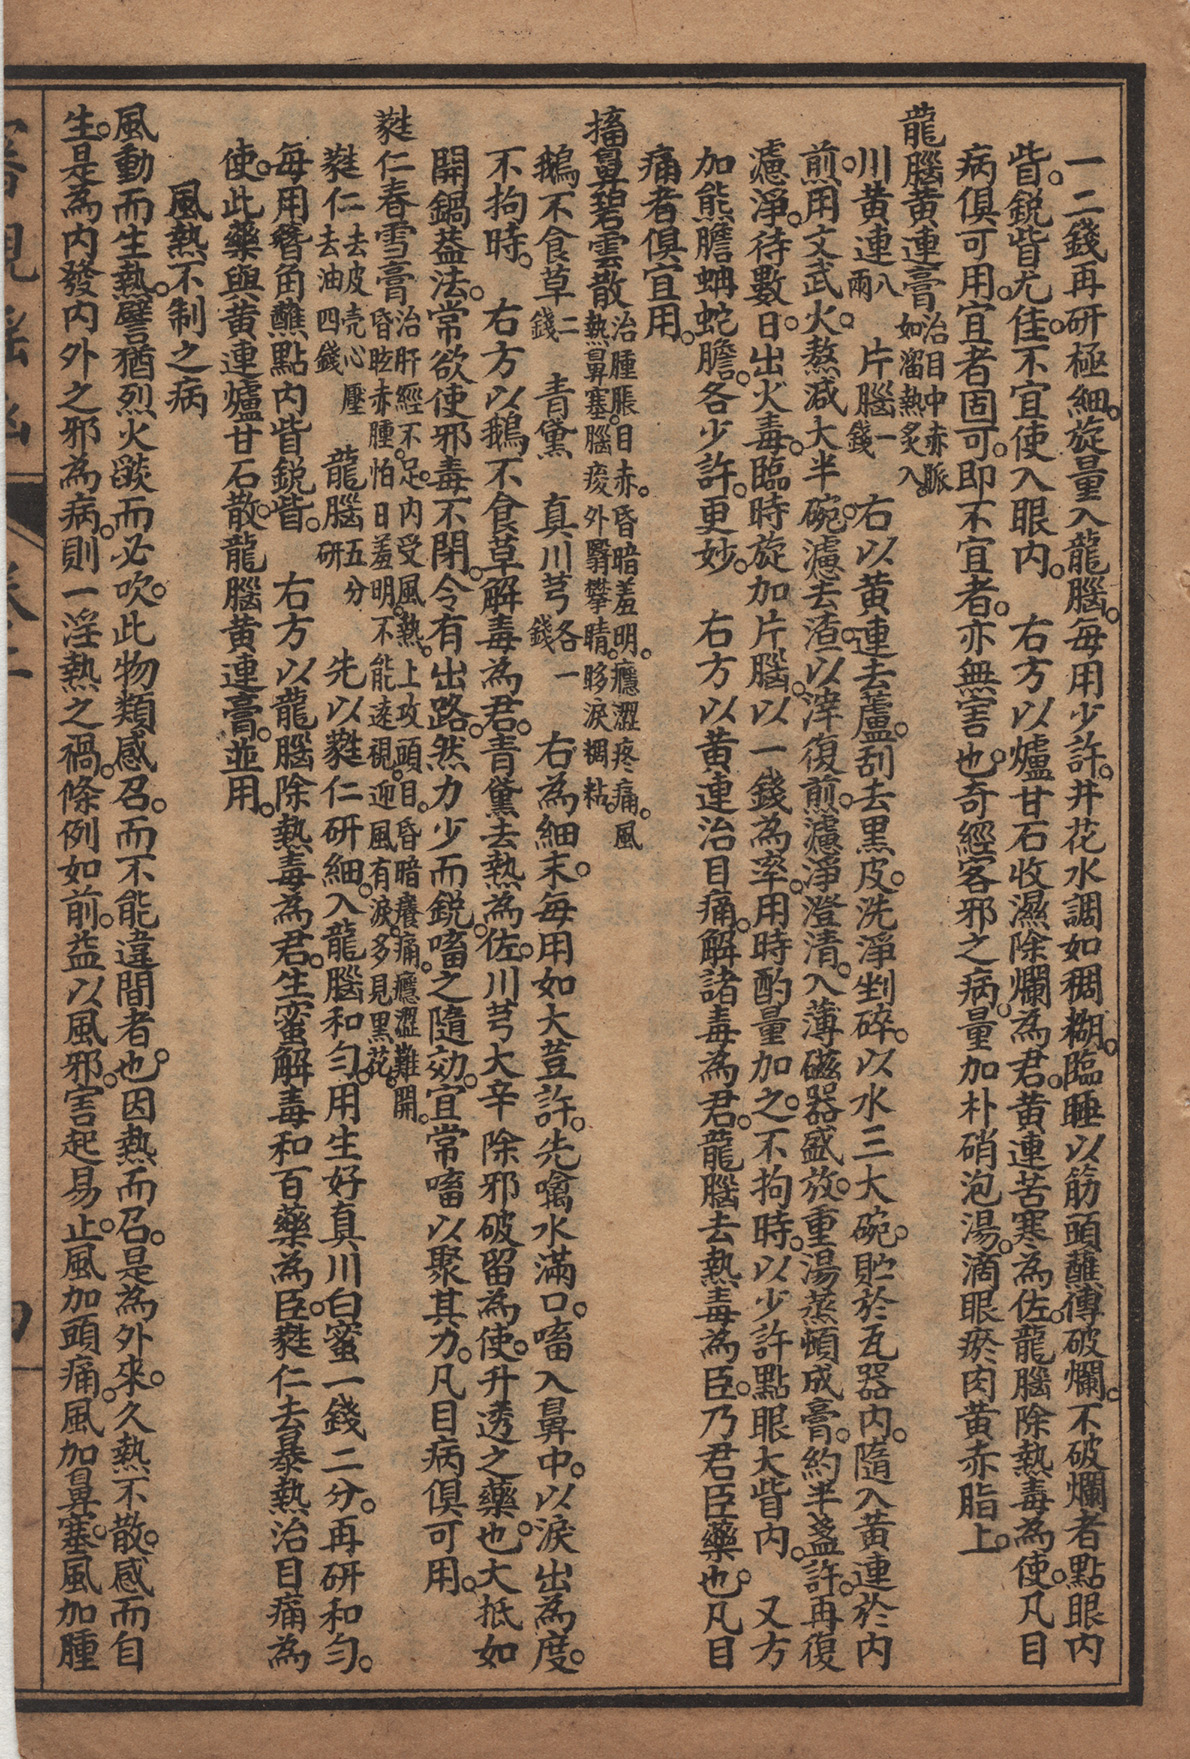 一二錢再研極細。旋量入龍腦。每用少許。井花水調如稠糊。臨睡以筋頭蘸傅破爛。不破爛者點眼內
眥。銳眥尤佳。不宜使入眼內。　右方以爐甘石收濕除爛為君。黄連苦寒為佐。龍腦除熱毒為使。凡目
病俱可用。宜者固可。即不宜者。亦無害也。奇經客邪之病。量加朴硝泡湯。滴眼瘀肉黄赤脂上。
龍腦黄連膏治目中赤脈如溜熱炙入。
川黄連八兩　片腦一錢　右以黄連去蘆。刮去黑皮。洗淨剉碎。以水三大碗。貯於瓦器內。隨入黄連於內
煎。用文武火。熬減大半碗。濾去渣。以滓復煎。濾淨澄清。入薄磁器盛放。重湯蒸頓成膏。約半盞許。再復
濾淨。待數日。出火毒。臨時旋加片腦。以一錢為率。用時酌量加之。不拘時。以少許點眼大眥內。　又方
加熊膽蚺蛇膽。各少許。更妙。　右方以黄連治目痛。解諸毒為君。龍腦去熱毒為臣。乃君臣藥也。凡目
痛者俱宜用。
搐鼻碧雲散治腫脹。日赤。昏暗羞明。癮澀疼痛。風熱鼻塞。腦痠外翳攀睛。眵淚稠粘。
鵝不食草二錢　青黛　真川芎各一錢　右為細末。每用如大荳許。先噙水滿口。嗇入鼻中。以淚出為度。
不拘時。　右方以鵝不食草解毒為君。青黛去熱為佐。川芎大辛除邪破留為使。升透之藥也。大抵如
開鍋葢法。常欲使邪毒不閉。令有出路。然力少而銳。嗇之隨効。宜常嗇以聚其力。凡目病俱可用。
蕤仁春雪膏治肝經不足。內受風熱。上攻頭目。昏暗癢痛。癮澀難開。昏眩赤腫怕日羞明。不能遠視。迎風有淚。多見黑花。
蕤仁去皮壳心壓去油四錢　龍腦五分研　先以蕤仁研細。入龍腦和勻。用生好真川白蜜一錢二分。再研和勻。
每用簪角蘸點內眥銳眥。　右方以龍腦除熱毒為君。生蜜解毒和百藥為臣。蕤仁去暴熱治目痛為
使。此藥與黄連爐甘石散。龍腦黄連膏。並用。
風熱不制之病
風動而生熱。譬猶烈火燄而必吹。此物類感召。而不能違間者也。因熱而召。是為外來。久熱不散。感而自
生。是為內發。內外之邪為病。則一淫熱之禍。條例如前。葢以風邪。害起易止。風加頭痛。風加鼻塞。風加腫